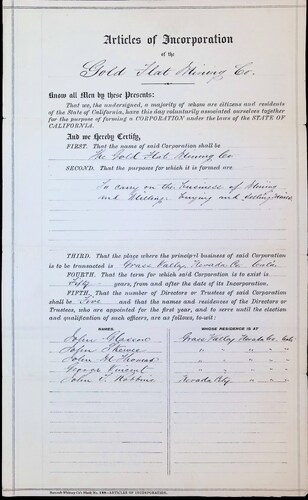 Articles of Incorporation
of the
Gold Flat Mining Co.
Know all Men by these Presents:
That we, the undersigned, a majority of whom are citizens and residents
of the State of California, have this day voluntarily associated ourselves together
for the purpose of forming a CORPORATION under the laws of the STATE OF
CALIFORNIA.
And we Hereby Certify,
FIRST. That the name of said Corporation shall be
The Gold Flat Mining Co
SECOND. That the purposes for which it is formed are
To carry on the business of Mining
and Milling. Buying and Selling Mines
THIRD. That the place where the principal business of said Corporation
is to be transacted is Grass Valley, Nevada Co. Cala
FOURTH. That the term for which said Corporation is to exist is
Fifty years, from and after the date of its Incorporation.
FIFTH. That the number of Directors or Trustees of said Corporation
shall be Five and that the names and residences of the Directors or
Trustees, who are appointed for the first year, and to serve until the election
and qualification of such officers, are as follows, to-wit:
NAMES. WHOSE RESIDENCE IS AT
John Grass Valley Nevada Co. Cala
John " " "
John M Thomas " " "
George " " "
John C Robbins Nevada City
ARTICLES OF INCORPORATION.